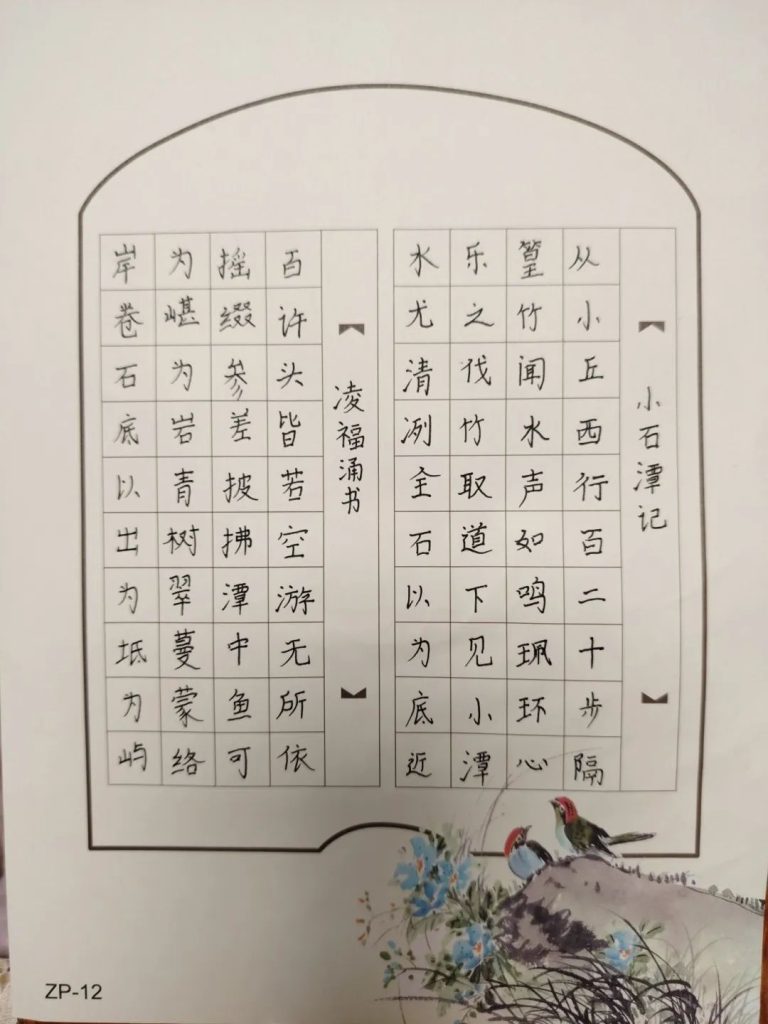 小石潭记
从小丘西行百二十步隔
篁竹闻水声如鸣珮环心
乐之伐竹取道下见小潭
水尤清冽全石以为底近
岸卷石底以出为坻为屿
为嵁为岩青树翠蔓蒙络
摇缀参差披拂潭中鱼可
百许头皆若空游无所依
凌福涌书
ZP-12